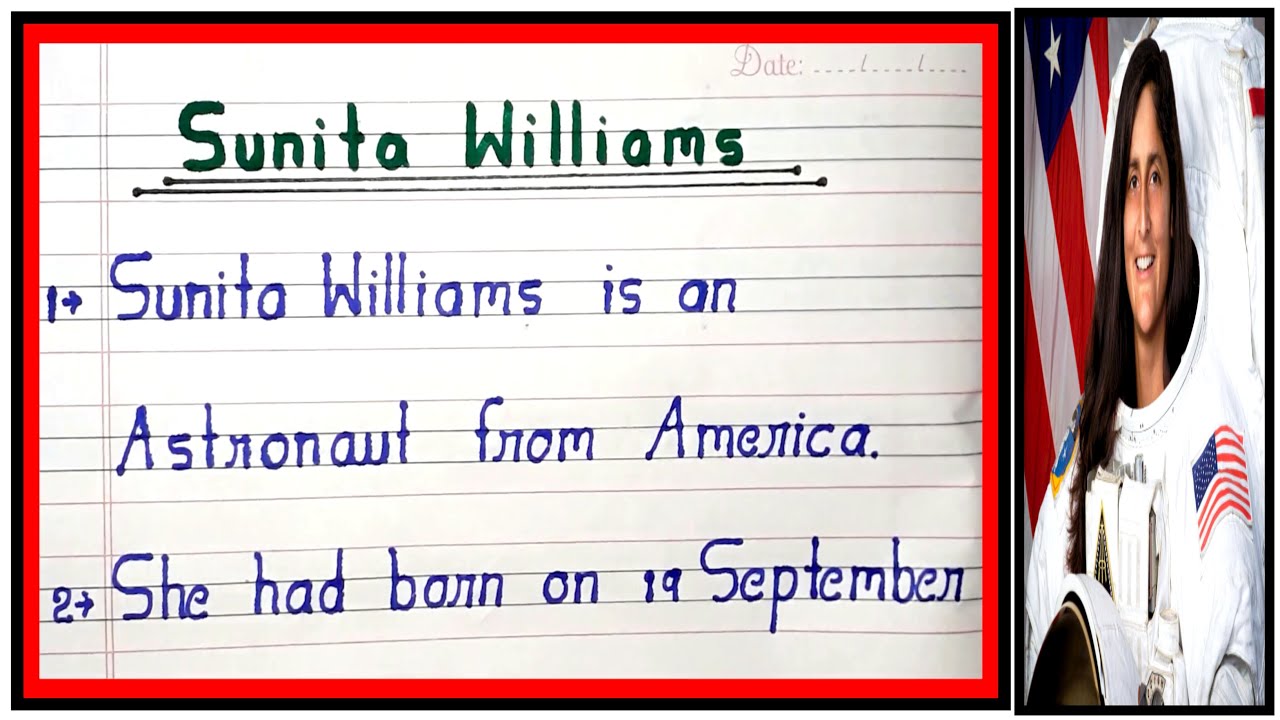 Date: ..../..../....
Sunita Williams
1→ Sunita Williams is an
Astronaut from America.
2→ She had born on 19 September